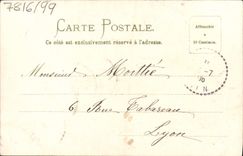 7816/99
CARTE POSTALE.
Ce côté est exclusivement réservé à l'adresse.
Affranchir
à
10 Centimes.
Monsieur Morthé
6, Rue Tabareau
Lyon